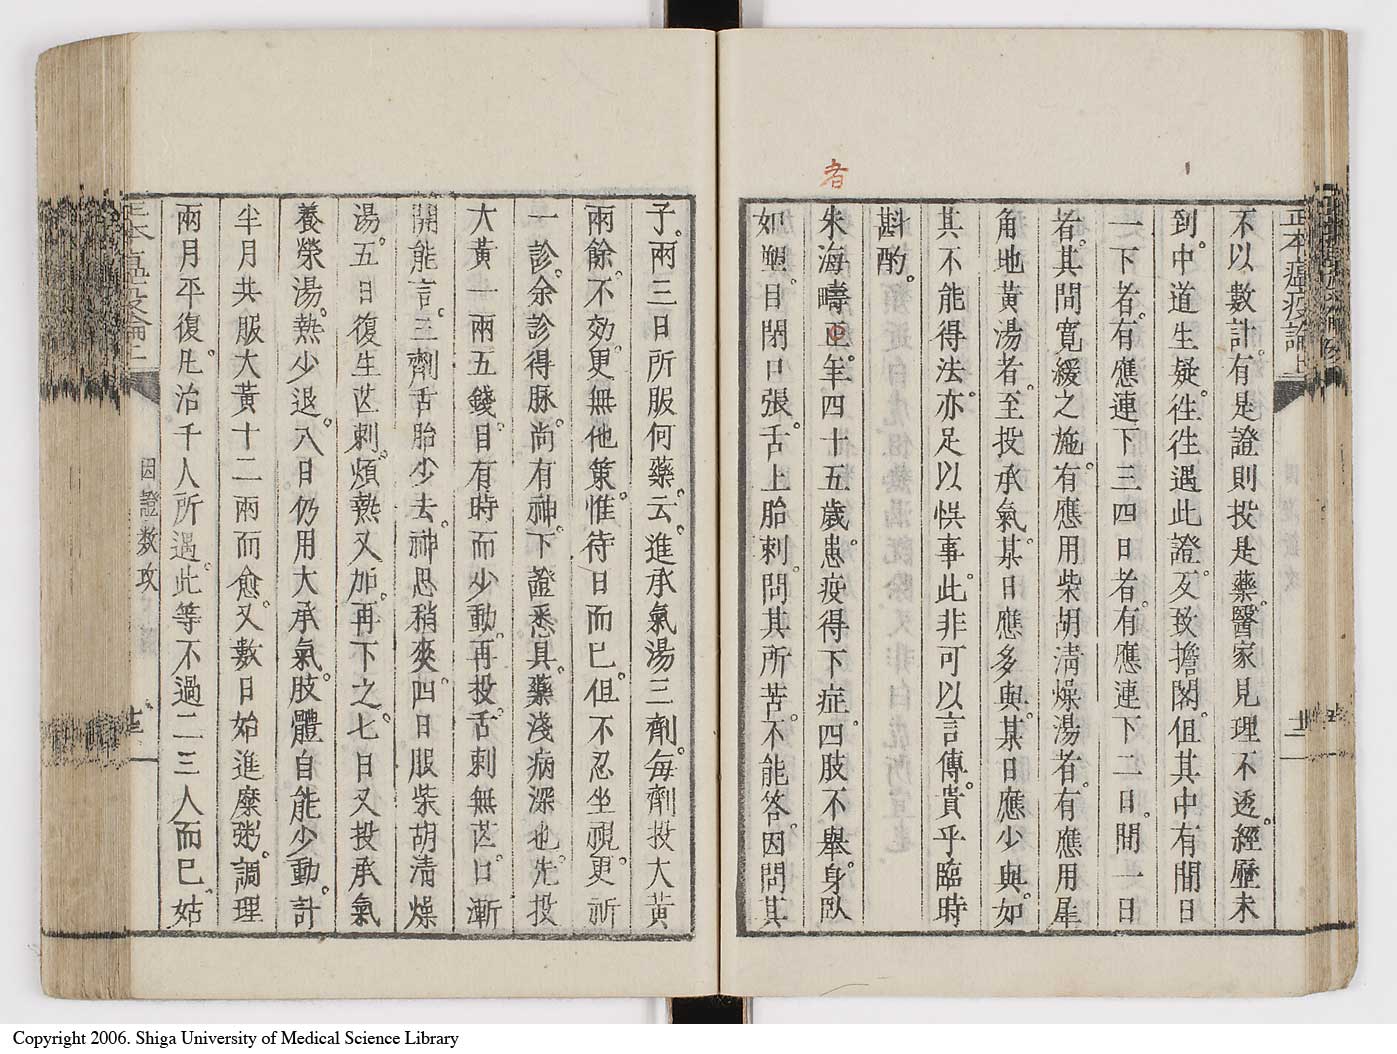 正本瘟疫論上
不以數計有是證則投是藥醫家見理不透經歷未
到中道生疑往往遇此證反致擔閣但其中有間日
一下者有應連下三四日者有應連下二日間一日
者其間寬緩之施有應用柴胡清燥湯者有應用犀
角地黃湯者至投承氣某日應多與某日應少與如
其不能得法亦足以悞事此非可以言傳貴乎臨時
斟酌
者
朱海疇正年四十五歲患疫得下症四肢不舉身臥
如塑目閉口張舌上胎刺問其所苦不能答因問其
子兩三日所服何藥云進承氣湯三劑每劑投大黃
兩餘不効更無他策惟待日而已但不忍坐視更祈
一診余診得脉尚有神下證悉具藥淺病深也先投
大黃一兩五錢目有時而少動再投舌刺無芒口漸
開能言三劑舌胎少去神思稍爽四日服柴胡清燥
湯五日復生芒刺煩熱又加再下之七日又投承氣
養榮湯熱少退八日仍用大承氣肢體自能少動計
半月共服大黃十二兩而愈又數日始進糜粥調理
兩月平復凡治千人所遇此等不過二三人而已姑
因證數攻
Copyright 2006. Shiga University of Medical Science Library